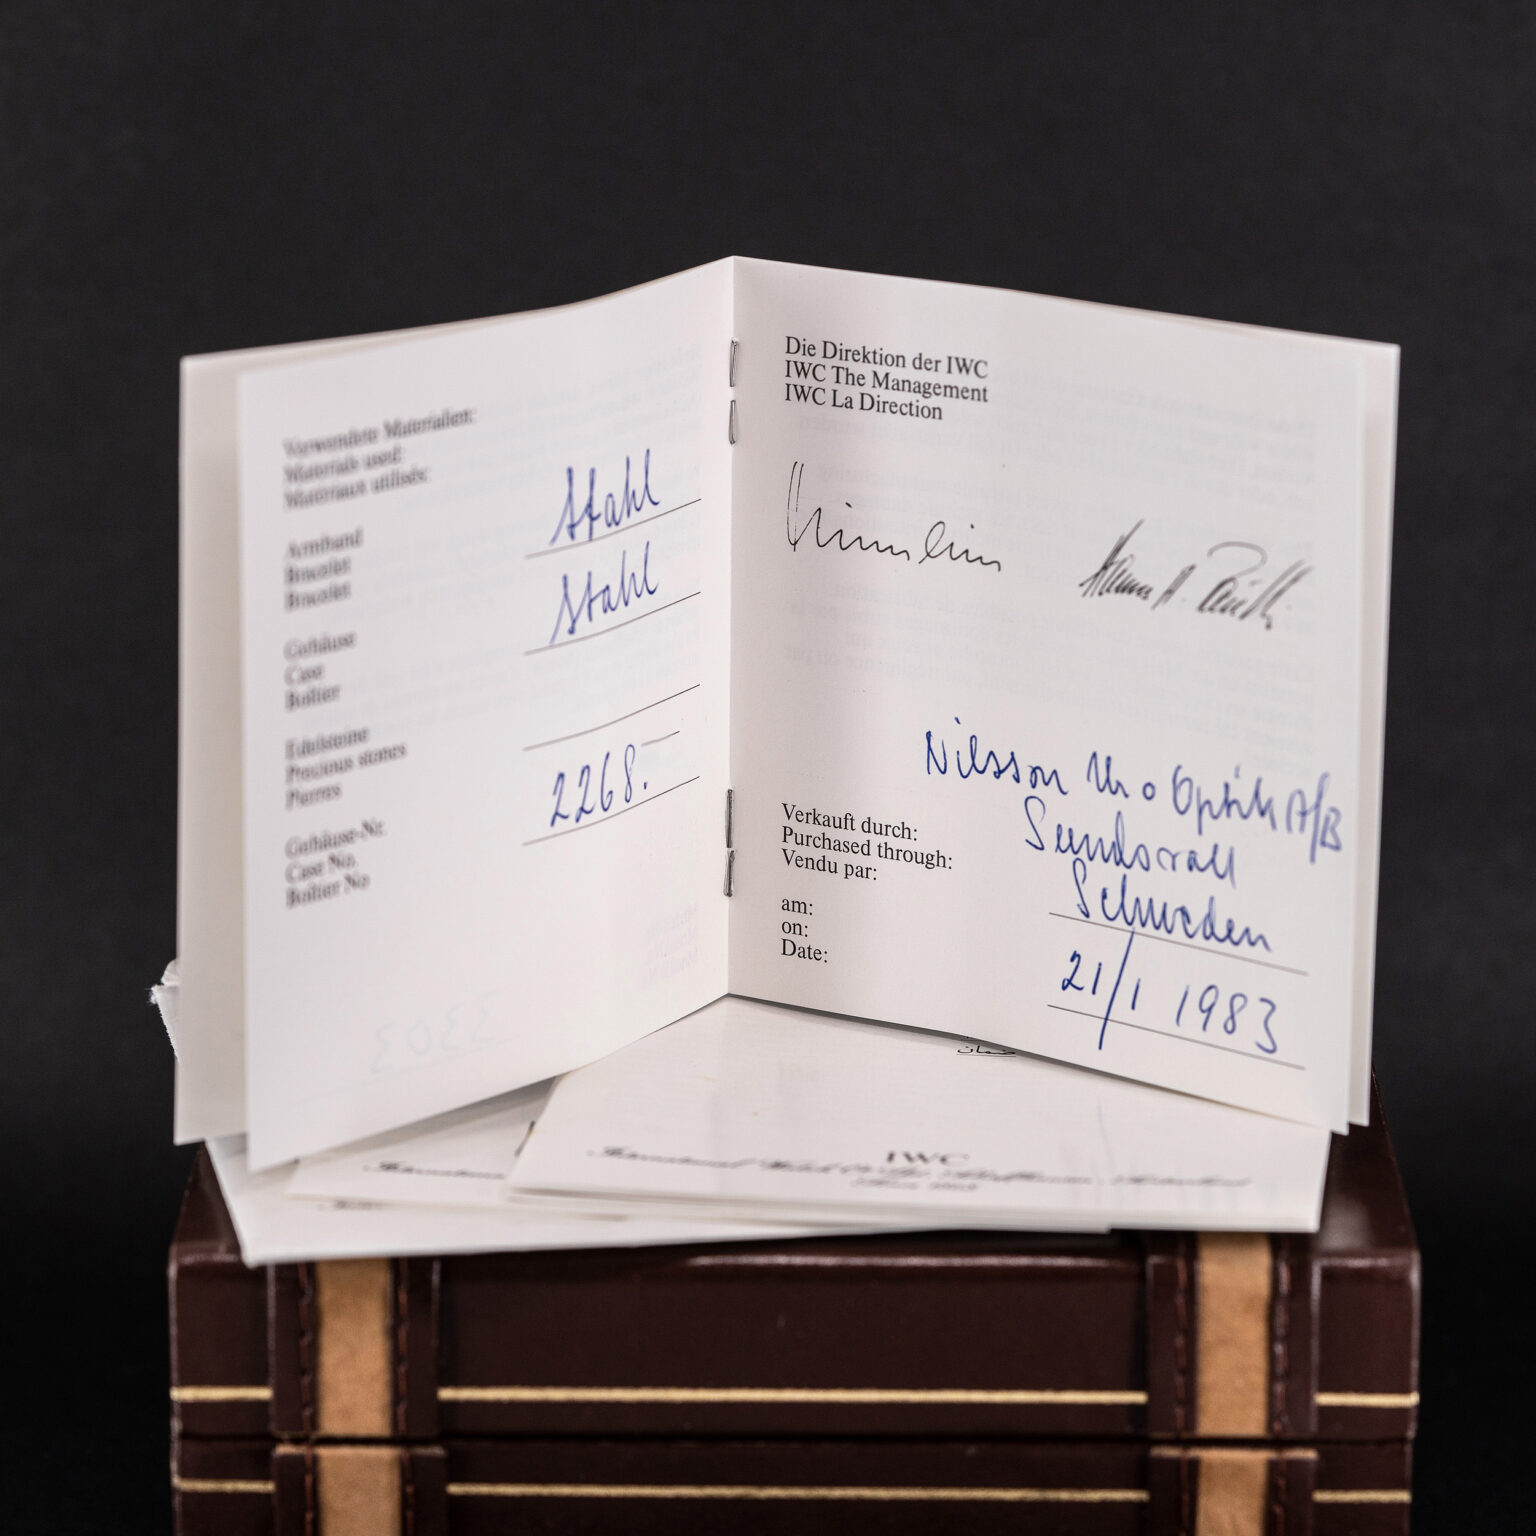 Verwendete Materialien:
Materials used:
Materiaux utilisés:
Armband
Bracelet
Bracelet
Stahl
Gehäuse
Case
Boîtier
Stahl
Edelsteine
Precious stones
Pierres
Gehäuse-Nr.
Case No.
Boîtier No
2268.—
3303
Die Direktion der IWC
IWC The Management
IWC La Direction
Hans A.
Verkauft durch:
Purchased through:
Vendu par:
Nilsson Ur o Optik A/B
Sundsvall
Schweden
am:
on:
Date:
21/1 1983
ضمان
IWC
International Watch Co.